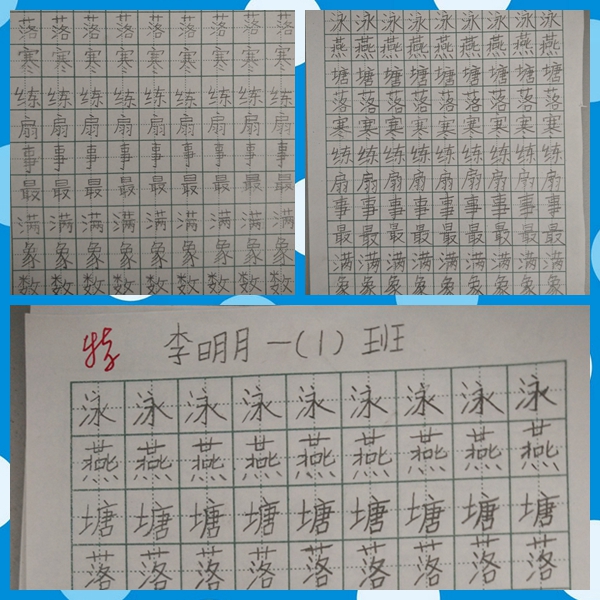 落落落落落落落落落
寒寒寒寒寒寒寒寒寒
练练练练练练练练练
扇扇扇扇扇扇扇扇扇
事事事事事事事事事
最最最最最最最最最
满满满满满满满满满
象象象象象象象象象
数数数数数数数数数
泳泳泳泳泳泳泳泳泳
燕燕燕燕燕燕燕燕燕
塘塘塘塘塘塘塘塘塘
落落落落落落落落落
寒寒寒寒寒寒寒寒寒
练练练练练练练练练
扇扇扇扇扇扇扇扇扇
事事事事事事事事事
最最最最最最最最最
满满满满满满满满满
象象象象象象象象象
特 李明月 一(1)班
泳泳泳泳泳泳泳泳泳
燕燕燕燕燕燕燕燕燕
塘塘塘塘塘塘塘塘塘
落落落落落落落落落